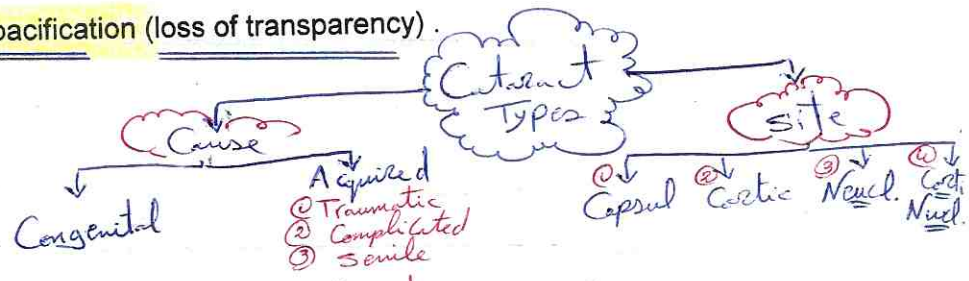 pacification (loss of transparency) .
Cataract
Types
Cause
Site
Congenital
Acquired
① Traumatic
② Complicated
③ Senile
① Capsul
② Cortic
③ Neucl.
④ Corti
Nucl.